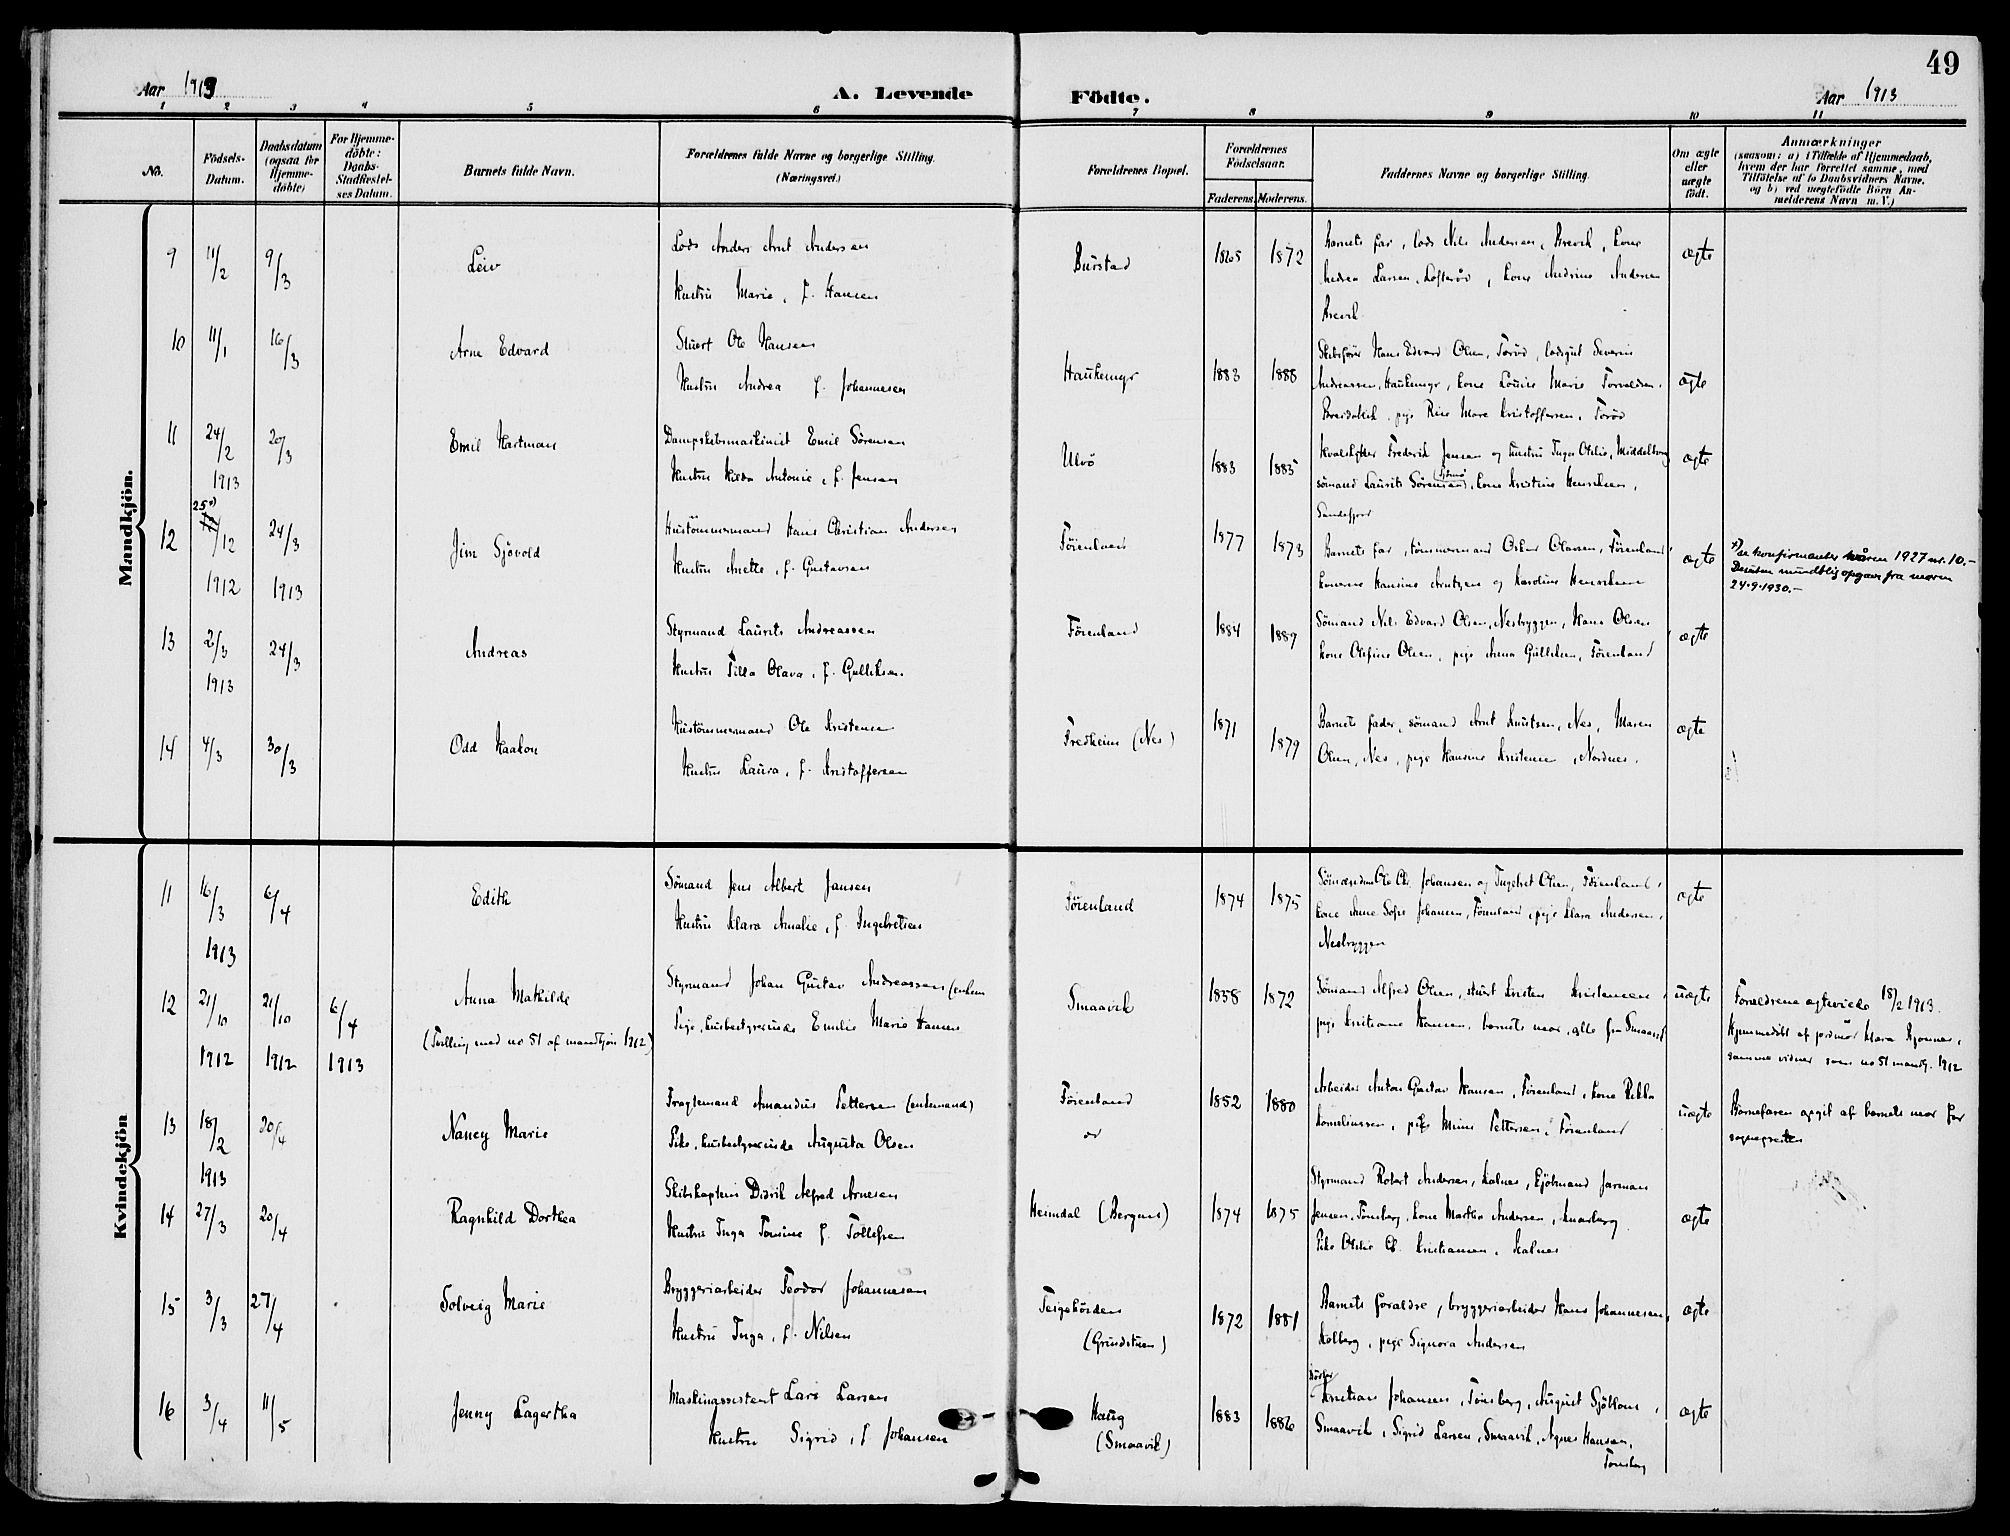 49
Aar 1913
A. Levende Födte.
Aar 1913
1 2 3 4 5 6 7 8 9 10 11
No.
Födsels-Datum.
Daabsdatum (ogsaa for Hjemmedöbte)
For Hjemmedöbte: Daabs-Stadfæstelses Datum.
Barnets fulde Navn.
Forældrenes fulde Navne og borgerlige Stilling.
(Næringsvei.)
Forældrenes Bopæl.
Forældrenes Födselsaar.
Faderens. Moderens.
Faddernes Navne og borgerlige Stilling.
Om ægte eller uægte födt.
Anmærkninger
(saasom: a) i Tilfælde af Hjemmedaab,
hvem der har forrettet samme, med
Tilföielse af to Daabsvidners Navne.
og b) ved uegtefödte Börn An-
melderens Navn m. V.)
Mandkjön.
9 11/2 9/3 Leiv
Lods Anders Arnt Andersen
Hustru Marie, f. Hansen
Burstad 1865 1872
Barnets far, lods Nils Andersen, Brevik, kone
Andrea Larsen, , kone Andrine Andersen
Brevik
ægte
10 11/1 16/3 Arne Edvard
Stuert Ole Hansen
Hustru Andrea f. Johannesen
Haukemyr 1883 1888
Skibsförer Hans Edvard Olsen, Torød, lodsgut Severin
Andreassen, Haukemyr, kone Louise Marie Torvaldsen,
pige Kristoffersen, Torød
ægte
11 24/2 1913 20/3 Emil Hartman
Dampskibsmaskinist Emil Sörensen
Hustru Hilda Antonie, f. Jensen
Ulvö 1883 1885
Hvalskytter Frederik Jensen og hustru Inga Otilie, Middelborg
sömand Laurits Sörensen, kone Kristine Henriksen,
Sandefjord
ægte
12 25x) /12 1912 24/3 1913 Jim Sjövold
Hustömmermand Hans Christian Andersen
Hustru Anette, f. Gustavsen
Föienland 1877 1873
Barnets far, tömmermand Oskar Olavsen, Föienland,
konerne Hansine Arntzen og Karoline Henriksen
ægte
x) se konfirmanter våren 1927 nr. 10.-
Desuten mundtlig opgave fra moren
24-9-1930.-
13 2/3 1913 24/3 Andreas
Styrmand Laurits Andreassen
Hustru Tilla Olava, f. Gulliksen
Föienland 1884 1889
Sömand Nils Edvard Olsen, Nesbryggen, Hans Olsen
kone Olefine Olsen, pige Anna Gulliksen, Föienland
ægte
14 4/3 30/3 Odd Haakon
Hustömmermand Ole Kristensen
Hustru Laura, f. Kristoffersen
Fredheim (Nes) 1871 1879
Barnets fader, sömand Arnt Knutsen, Nes, Maren
Olsen, Nes, pige Hansine Kristensen, Nordnes.
ægte
Kvindekjön
11 16/3 1913 6/4 Edith
Sömand Jens Albert Jansen
Hustru Klara Amalie, f. Ingebretsen
Föienland 1874 1875
Sömændene Ole Chr. Johansen og Ingebret Olsen, Föienland,
kone Anne Sofie Johansen, Föienland, pige Klara Andersen,
Nesbryggen
ægte
12 21/10 1912 21/10 1912 6/4 1913 Anna Mathilde
(Tvilling med no 51 af mandkjön 1912)
Styrmand Johan Gustav Andreassen (enkem
Pige, husbestyrerinde Emilie Marie Hansen
Smaavik 1858 1872
Sömand Alfred Olsen, stuert Kristen Kristensen,
pige Kristiane Hansen, barnets mor, alle fra Smaavik
uægte
Forældrene ægteviede 18/2 1913.
Hjemmedöbt af jordmor Klara ,
samme vidner som no 51 mandkj. 1912
13 18/2 1913 20/4 Nancy Marie
Fragtemand Amandus Pettersen (enkemand)
Pike, husbestyrerinde Augusta Olsen
Föienland 1852 1880
Arbeider Anton Gustav Hansen, Föienland, kone Rikka
Korneliussen, pige Mina Pettersen, Föienland
uægte
Barnefaren opgit af barnets mor for
sognepresten
14 27/3 20/4 Ragnhild Dorthea
Skibskaptein Didrik Alfred Arnesen
Hustru Inga Tomine f. Tollefsen
Heimdal (Bergan) 1874 1875
Styrmand Robert Andersen, Kalnes, kjöbmand Jarman
Jensen, Tönsberg, kone Martha Andersen, Knarberg
Pike Otilie Kristiansen, Kalnes
ægte
15 3/3 27/4 Solveig Marie
Bryggeriarbeider Teodor Johannesen
Hustru Inga, f. Nilsen
Teigehöiden (Grindstuen) 1872 1881
Barnets forældre, bryggeriarbeider Hans Johannesen,
Kolberg, pige Signora Andersen
ægte
16 3/4 11/5 Jenny Lagertha
Maskinassistent Lars Larsen
Hustru Sigrid, f. Johansen
Haug (Smaavik) 1883 1886
Kristian Johansen, Tönsberg, August Sjöblom,
Smaavik, Sigrid Larsen, Smaavik, Agnes Hansen,
Tönsberg
ægte